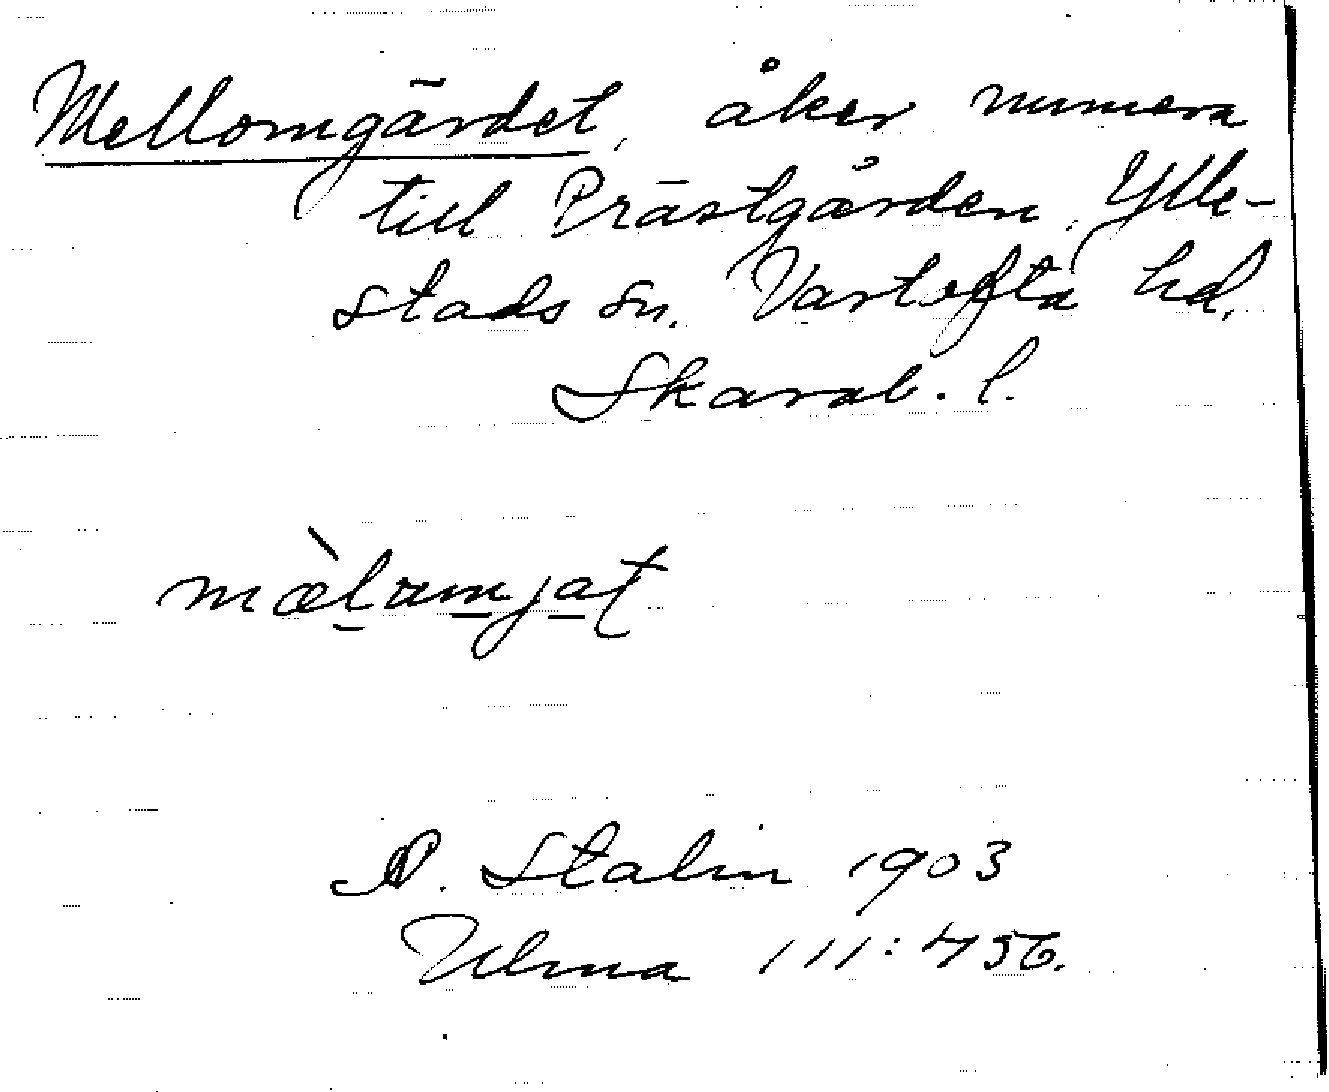 Mellomgärdet, åker numera
till Prästgården, Ylle-
stads sn. Vartofta hd,
Skarab. l.
mæ̀lɷmjat
Stalin 1903
Ulma 111:456.